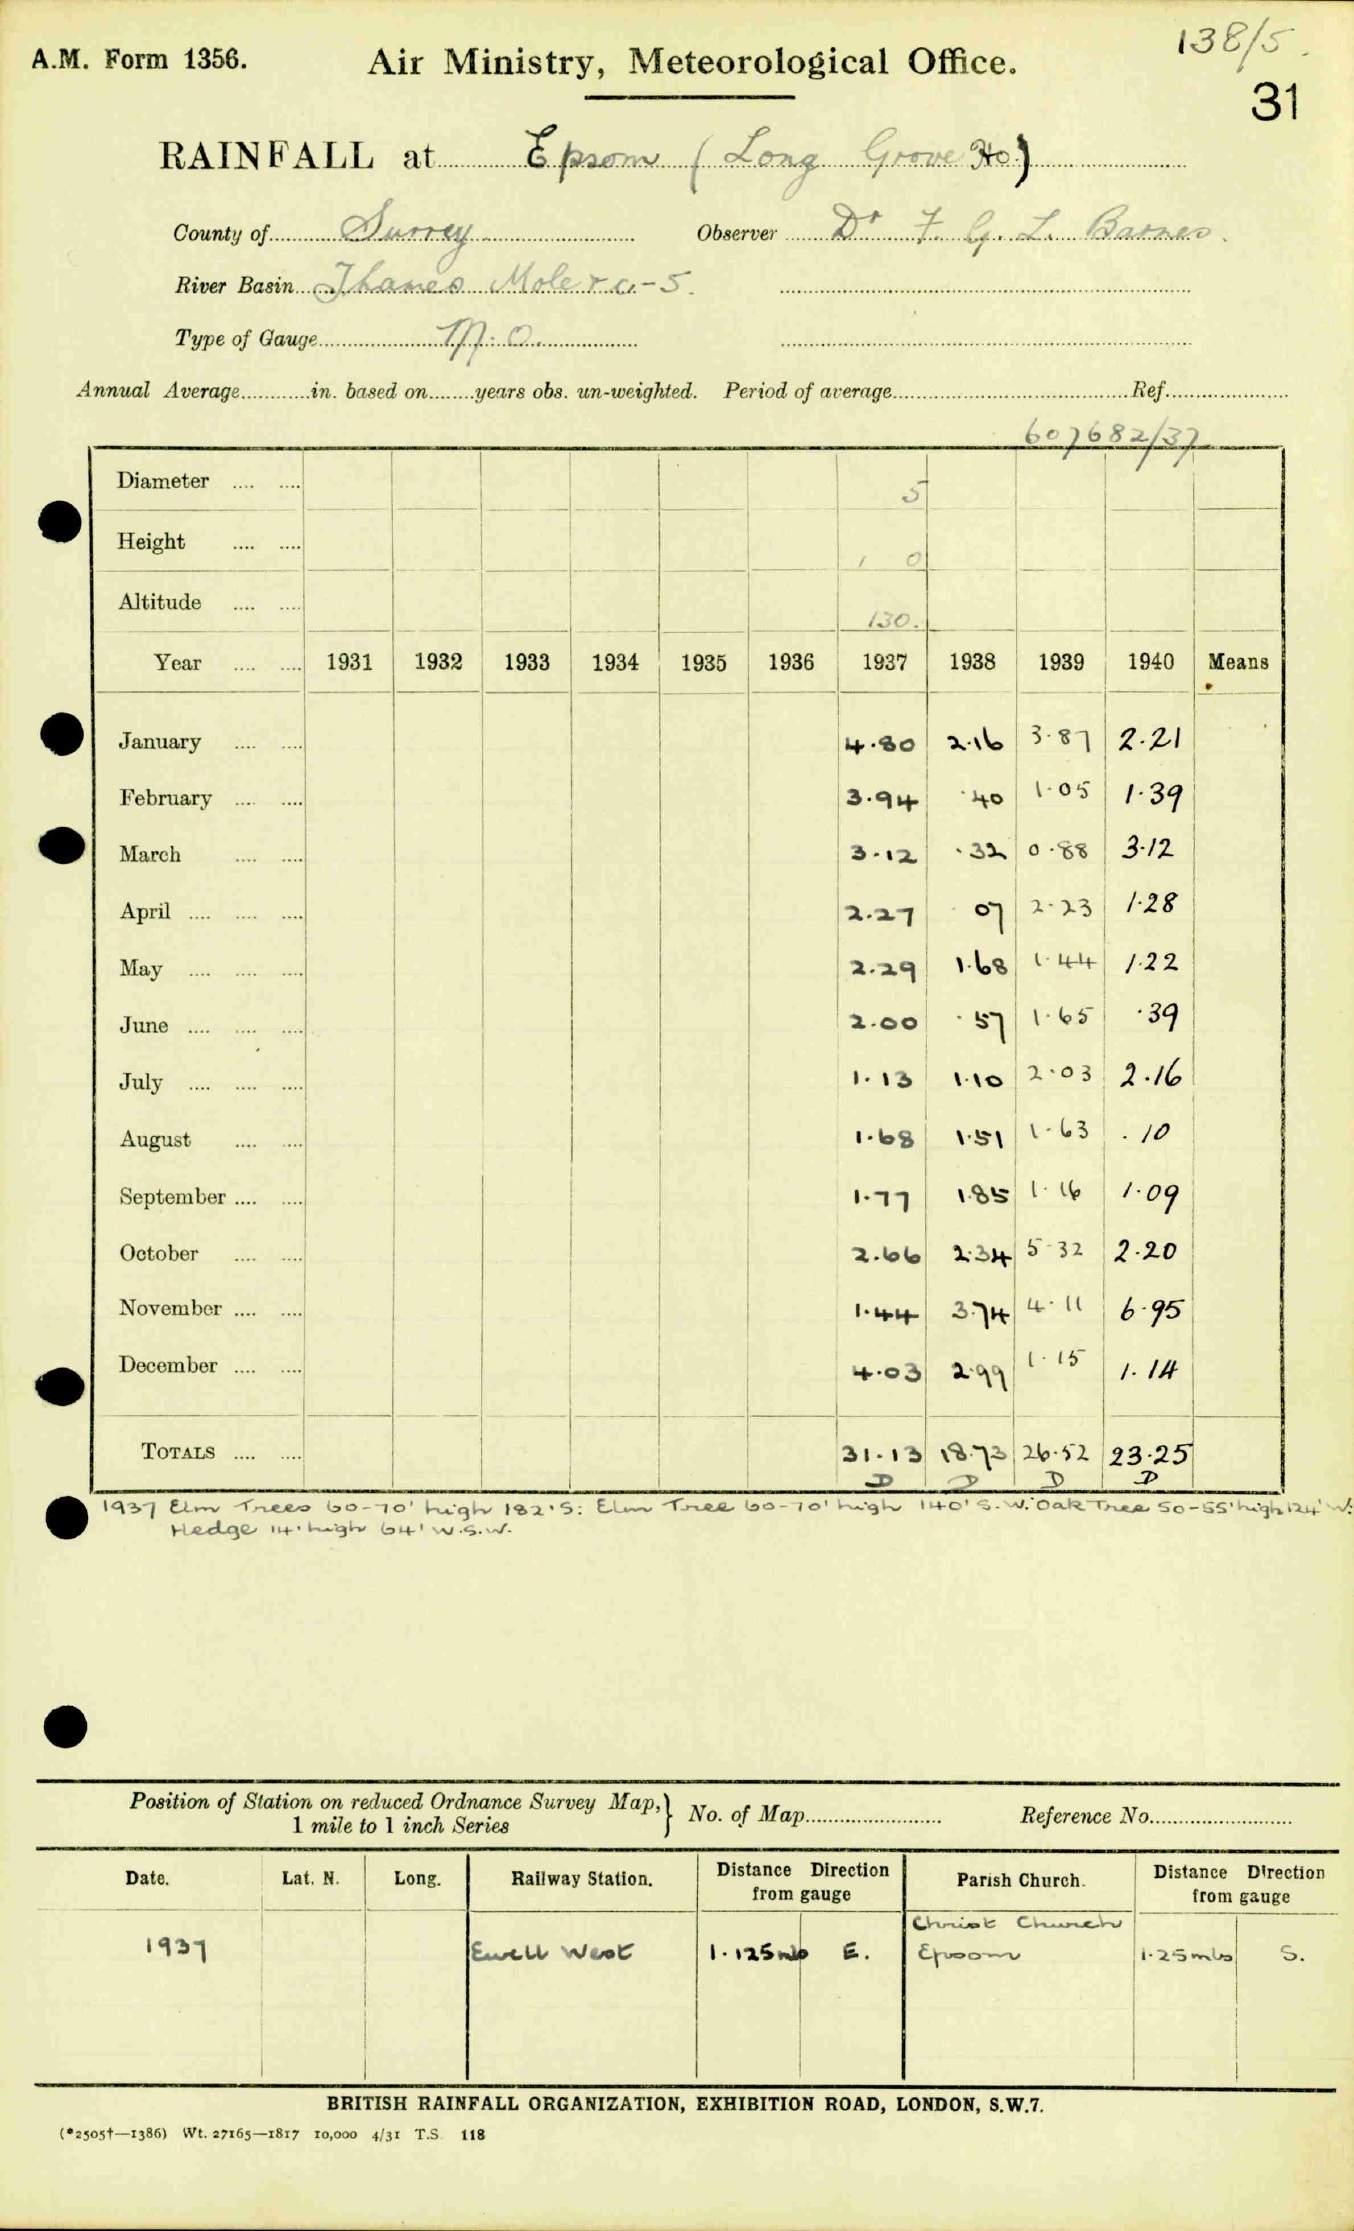 138/5.
A.M. Form 1356. Air Ministry, Meteorological Office.
31
RAINFALL at Epsom (Long Grove Ho)
County of Surrey Observer Dr F. G. L. Barnes.
River Basin Thames Mole &c - 5.
Type of Gauge M. O.
Annual Average in. based on years obs. un-weighted. Period of average Ref.
607682/37
Diameter 5
Height 1 0
Altitude 130.
Year 1931 1932 1933 1934 1935 1936 1937 1938 1939 1940 Means
January 4.80 2.16 3.87 2.21
February 3.94 .40 1.05 1.39
March 3.12 .32 0.88 3.12
April 2.27 07 2.23 1.28
May 2.29 1.68 1.44 1.22
June 2.00 .57 1.65 .39
July 1.13 1.10 2.03 2.16
August 1.68 1.51 1.63 .10
September 1.77 1.85 1.16 1.09
October 2.66 2.34 5.32 2.20
November 1.44 3.74 4.11 6.95
December 4.03 2.99 1.15 1.14
TOTALS 31.13 18.73 26.52 23.25
D D D D
1937 Elm Trees 60-70' high 182' S: Elm Tree 60-70' high 140' S.W. Oak Tree 50-55' high 124' W:
Hedge 14' high 64' W.S.W.
Position of Station on reduced Ordnance Survey Map, 1 mile to 1 inch Series } No. of Map Reference No.
Date. Lat. N. Long. Railway Station. Distance Direction from gauge Parish Church. Distance Direction from gauge
Christ Church
1937 Ewell West 1.125mls E. Epsom 1.25mls S.
BRITISH RAINFALL ORGANIZATION, EXHIBITION ROAD, LONDON, S.W.7.
(*2505†—1386) Wt. 27165—1817 10,000 4/31 T.S. 118